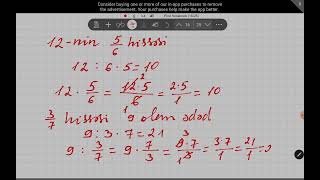 Consider buying one or more of our in app purchases to remove
the advertisement. Your purchases help make the app better.
12-nin 5/6 hissəsi
12 : 6 · 5 = 10
12 · 5/6 = 12·5/6 = 2·5/1 = 10
3/7 hissəsi 9 olan ədəd
9 : 3 · 7 = 21
9 : 3/7 = 9 · 7/3 = 9·7/3 = 3·7/1 = 21/1 = 2